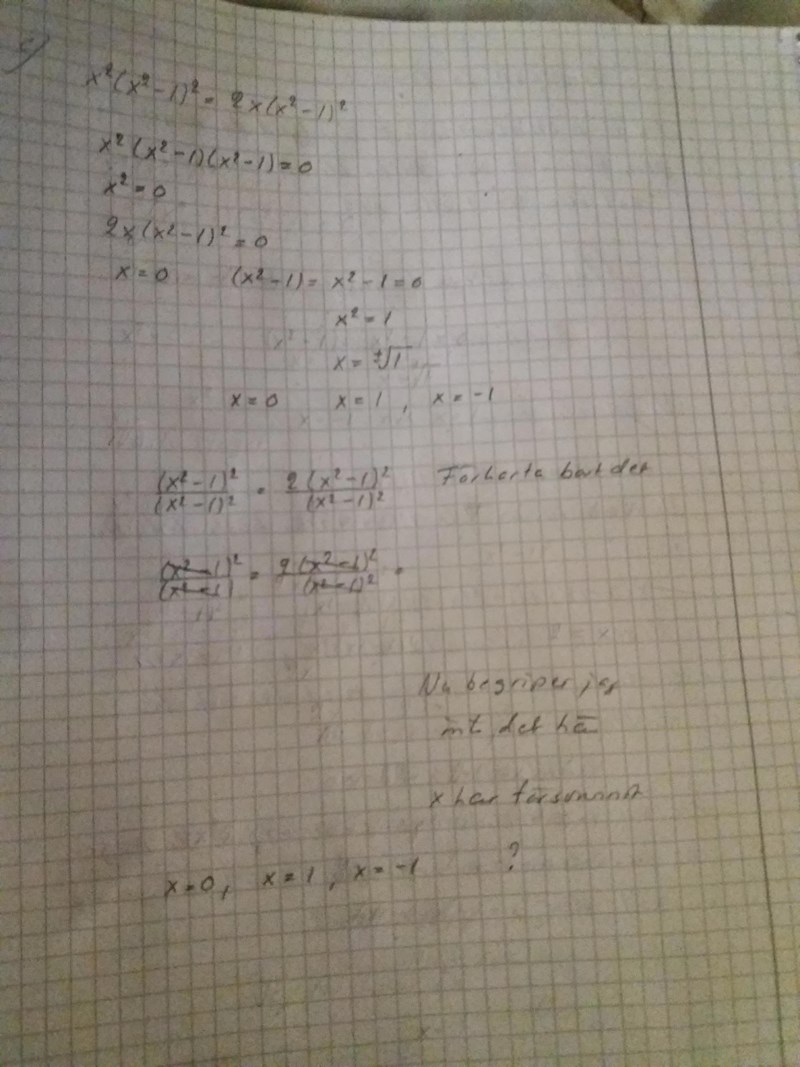 c)
x²(x²-1)² = 2x(x²-1)²
x²(x²-1)(x²-1)=0
x²=0
2x(x²-1)²=0
x=0 (x²-1)= x²-1=0
x²=1
x=±√1
x=0 x=1, x=-1
(x²-1)²/(x²-1)² = 2(x²-1)²/(x²-1)² Förkorta bort det
(x²-1)²/(x²-1) = 2(x²-1)²/(x²-1)² =
Nu begriper jag
int det hä
x har försvunnit
x=0, x=1, x=-1 ?